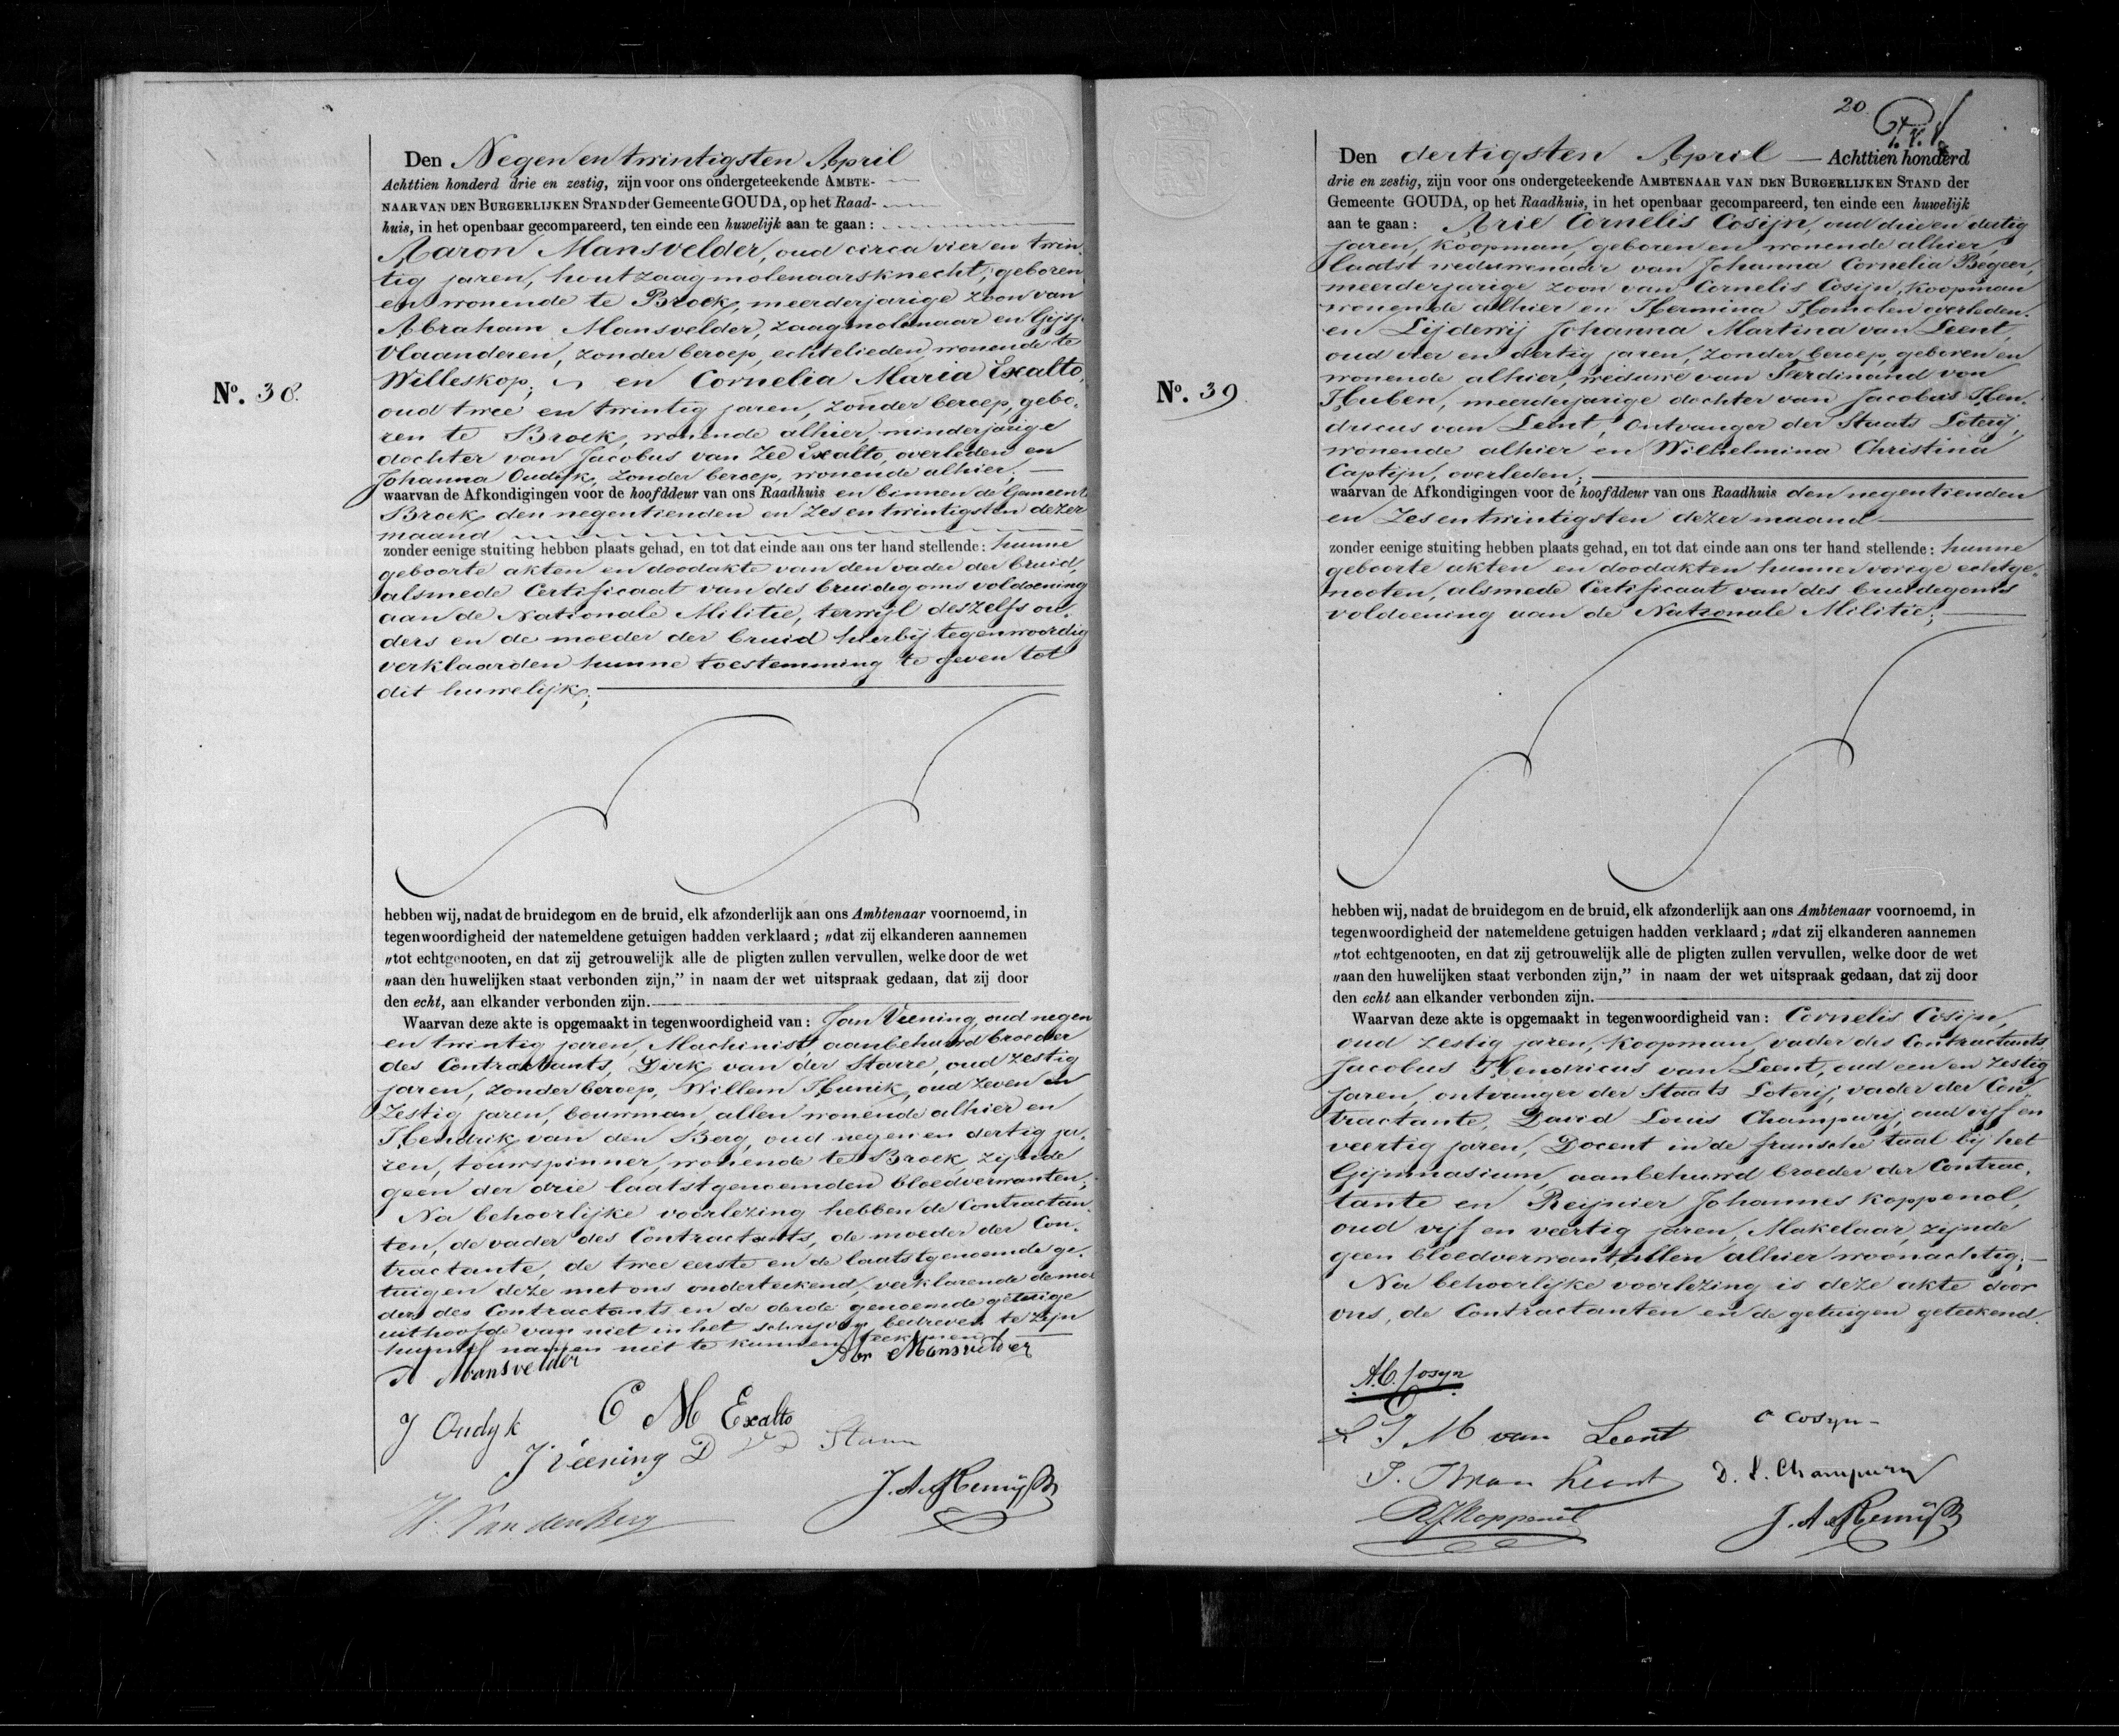 Den Negen en twintigsten April
Achttien honderd drie en zestig, zijn voor ons ondergeteekende AMBTE-
NAAR VAN DEN BURGERLIJKEN STAND der Gemeente GOUDA, op het Raad-
huis, in het openbaar gecompareerd, ten einde een huwelijk aan te gaan:
Aaron Mansvelder, oud circa vier en twin-
tig jaren, houtzaagmolenaarsknecht, geboren
en wonende te Broek, meerderjarige zoon van
Abraham Mansvelder, zaagmolenaar en Gijsje
Vlaanderen, zonder beroep, echtelieden wonende te
Willeskop; en Cornelia Maria Exalto,
No. 38.
oud twee en twintig jaren, zonder beroep, gebo-
ren te Broek, wonende alhier, minderjarige
dochter van Jacobus van Zee Exalto, overleden en
Johanna Oudijk, zonder beroep, wonende alhier;
waarvan de Afkondigingen voor de hoofddeur van ons Raadhuis en binnen de Gemeente
Broek den negentienden en zes en twintigsten dezer
maand
zonder eenige stuiting hebben plaats gehad, en tot dat einde aan ons ter hand stellende: hunne
geboorte akten en doodakte van den vader der bruid,
alsmede Certificaat van des bruidegoms voldoening
aan de Nationale Militie, terwijl deszelfs ou-
ders en de moeder der bruid hierbij tegenwoordig
verklaarden hunne toestemming te geven tot
dit huwelijk;
hebben wij, nadat de bruidegom en de bruid, elk afzonderlijk aan ons Ambtenaar voornoemd, in
tegenwoordigheid der natemeldene getuigen hadden verklaard; „dat zij elkanderen aannemen
„tot echtgenooten, en dat zij getrouwelijk alle de pligten zullen vervullen, welke door de wet
„aan den huwelijken staat verbonden zijn,” in naam der wet uitspraak gedaan, dat zij door
den echt, aan elkander verbonden zijn.
Waarvan deze akte is opgemaakt in tegenwoordigheid van: Jan Veening, oud negen
en twintig jaren, Machinist, aanbehuwd broeder
des Contractants, Dirk van der Starre, oud zestig
jaren, zonder beroep, Willem Hunik, oud zeven en
zestig jaren, bouwman, allen wonende alhier en
Hendrik van den Berg, oud negen en dertig ja-
ren, touwspinner, wonende te Broek, zijnde
geen der drie laatstgenoemden bloedverwanten;
Na behoorlijke voorlezing hebben de Contractan-
ten, de vader des Contractants, de moeder der Con-
tractante, de twee eerste en de laatstgenoemde ge-
tuigen deze met ons onderteekend, verklarende de moe
der des Contractants en de derde genoemde getuige
uithoofde van niet in het schrijven bedreven te zijn
hunne namen niet te kunnen teekenen
A Mansvelder Abr Mansvelder
J Oudyk C M Exalto
J Veening D V D Starre
H. Van den Berg J. A. Remij B
20
Den dertigsten April Achttien honderd
drie en zestig, zijn voor ons ondergeteekende AMBTENAAR VAN DEN BURGERLIJKEN STAND der
Gemeente GOUDA, op het Raadhuis, in het openbaar gecompareerd, ten einde een huwelijk
aan te gaan: Arie Cornelis Cosijn, oud drie en dertig
jaren, koopman, geboren en wonende alhier,
laatst weduwenaar van Johanna Cornelia Begeer,
meerderjarige zoon van Cornelis Cosijn, koopman
wonende alhier en Hermina Homolen overleden.
en Lijdewij Johanna Martina van Leent,
oud vier en dertig jaren, zonder beroep, geboren en
wonende alhier, weduwe van Ferdinand von
No. 39.
Huben, meerderjarige dochter van Jacobus Hen-
dricus van Leent, Ontvanger der Staats Loterij,
wonende alhier en Wilhelmina Christina
Captijn, overleden;
waarvan de Afkondigingen voor de hoofddeur van ons Raadhuis den negentienden
en zes en twintigsten dezer maand
zonder eenige stuiting hebben plaats gehad, en tot dat einde aan ons ter hand stellende: hunne
geboorte akten en doodakten hunner vorige echtge-
nooten, alsmede Certificaat van des bruidegoms
voldoening aan de Nationale Militie;
hebben wij, nadat de bruidegom en de bruid, elk afzonderlijk aan ons Ambtenaar voornoemd, in
tegenwoordigheid der natemeldene getuigen hadden verklaard; „dat zij elkanderen aannemen
„tot echtgenooten, en dat zij getrouwelijk alle de pligten zullen vervullen, welke door de wet
„aan den huwelijken staat verbonden zijn,” in naam der wet uitspraak gedaan, dat zij door
den echt aan elkander verbonden zijn.
Waarvan deze akte is opgemaakt in tegenwoordigheid van: Cornelis Cosijn,
oud zestig jaren, koopman, vader des Contractants,
Jacobus Hendricus van Leent, oud een en zestig
jaren, ontvanger der Staats Loterij, vader der Con-
tractante, David Louis Champurij, oud vijf en
veertig jaren, Docent in de fransche taal bij het
Gijmnasium, aanbehuwd broeder der Contrac-
tante en Reijnier Johannes Koppenol,
oud vijf en veertig jaren, Makelaar, zijnde
geen bloedverwant, allen alhier woonachtig;
Na behoorlijke voorlezing is deze akte door
ons, de Contractanten en de getuigen geteekend.
A.C. Cosyn
L J M van Leent C Cosyn
J. H van Leent D. L. Champury
R J Koppenol J. A. Remij B